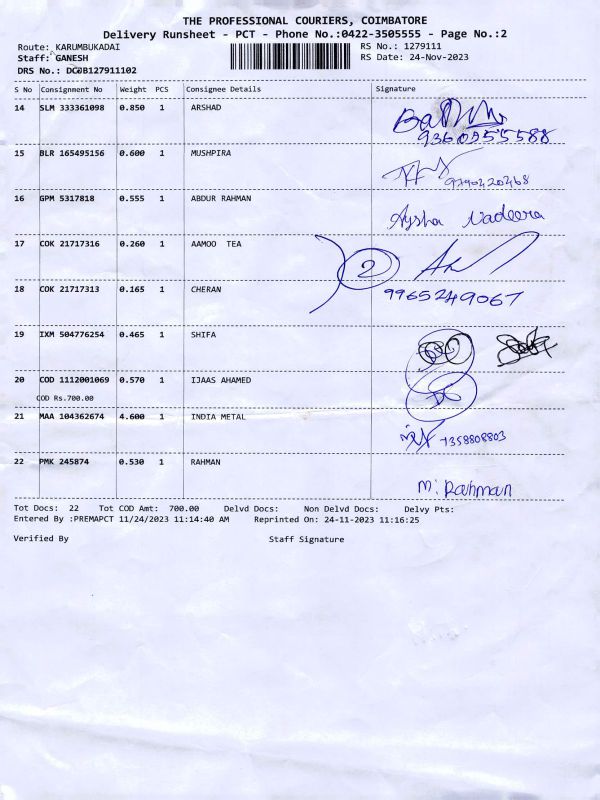 THE PROFESSIONAL COURIERS, COIMBATORE
Delivery Runsheet - PCT - Phone No.:0422-3505555 - Page No.:2
Route: KARUMBUKADAI RS No.: 1279111
Staff: GANESH RS Date: 24-Nov-2023
DRS No.: DC0B127911102
S No Consignment No Weight PCS Consignee Details Signature
14 SLM 333361098 0.850 1 ARSHAD
9360955588
15 BLR 165495156 0.600 1 MUSHPIRA
9790420468
16 GPM 5317818 0.555 1 ABDUR RAHMAN Aysha Nadeera
17 COK 21717316 0.260 1 AAMOO TEA 2
18 COK 21717313 0.165 1 CHERAN 9965249067
19 IXM 504776254 0.465 1 SHIFA
20 COD 1112001069 0.570 1 IJAAS AHAMED
COD Rs.700.00
21 MAA 104362674 4.600 1 INDIA METAL 7358808803
22 PMK 245874 0.530 1 RAHMAN M. Rahman
Tot Docs: 22 Tot COD Amt: 700.00 Delvd Docs: Non Delvd Docs: Delvy Pts:
Entered By :PREMAPCT 11/24/2023 11:14:40 AM Reprinted On: 24-11-2023 11:16:25
Verified By Staff Signature